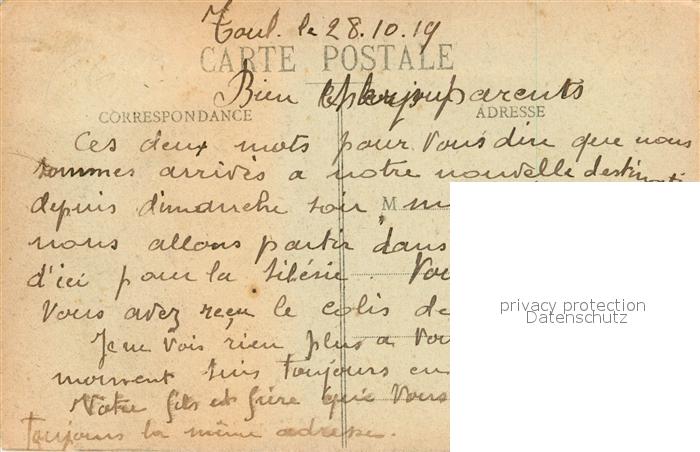 Toul. le 28.10.19
CARTE POSTALE
Bien chers parents
CORRESPONDANCE
ADRESSE
Ces deux mots pour vous dire que nous
sommes arrivés a notre nouvelle
depuis dimanche soir
M
nous allons partir dans
d'ici pour la Silésie. Vou
Vous avez reçu le colis de
Je ne vois rien plus a vou
moment suis toujours en
Votre fils et frère qui vous
toujours la même adresse.
privacy protection
Datenschutz